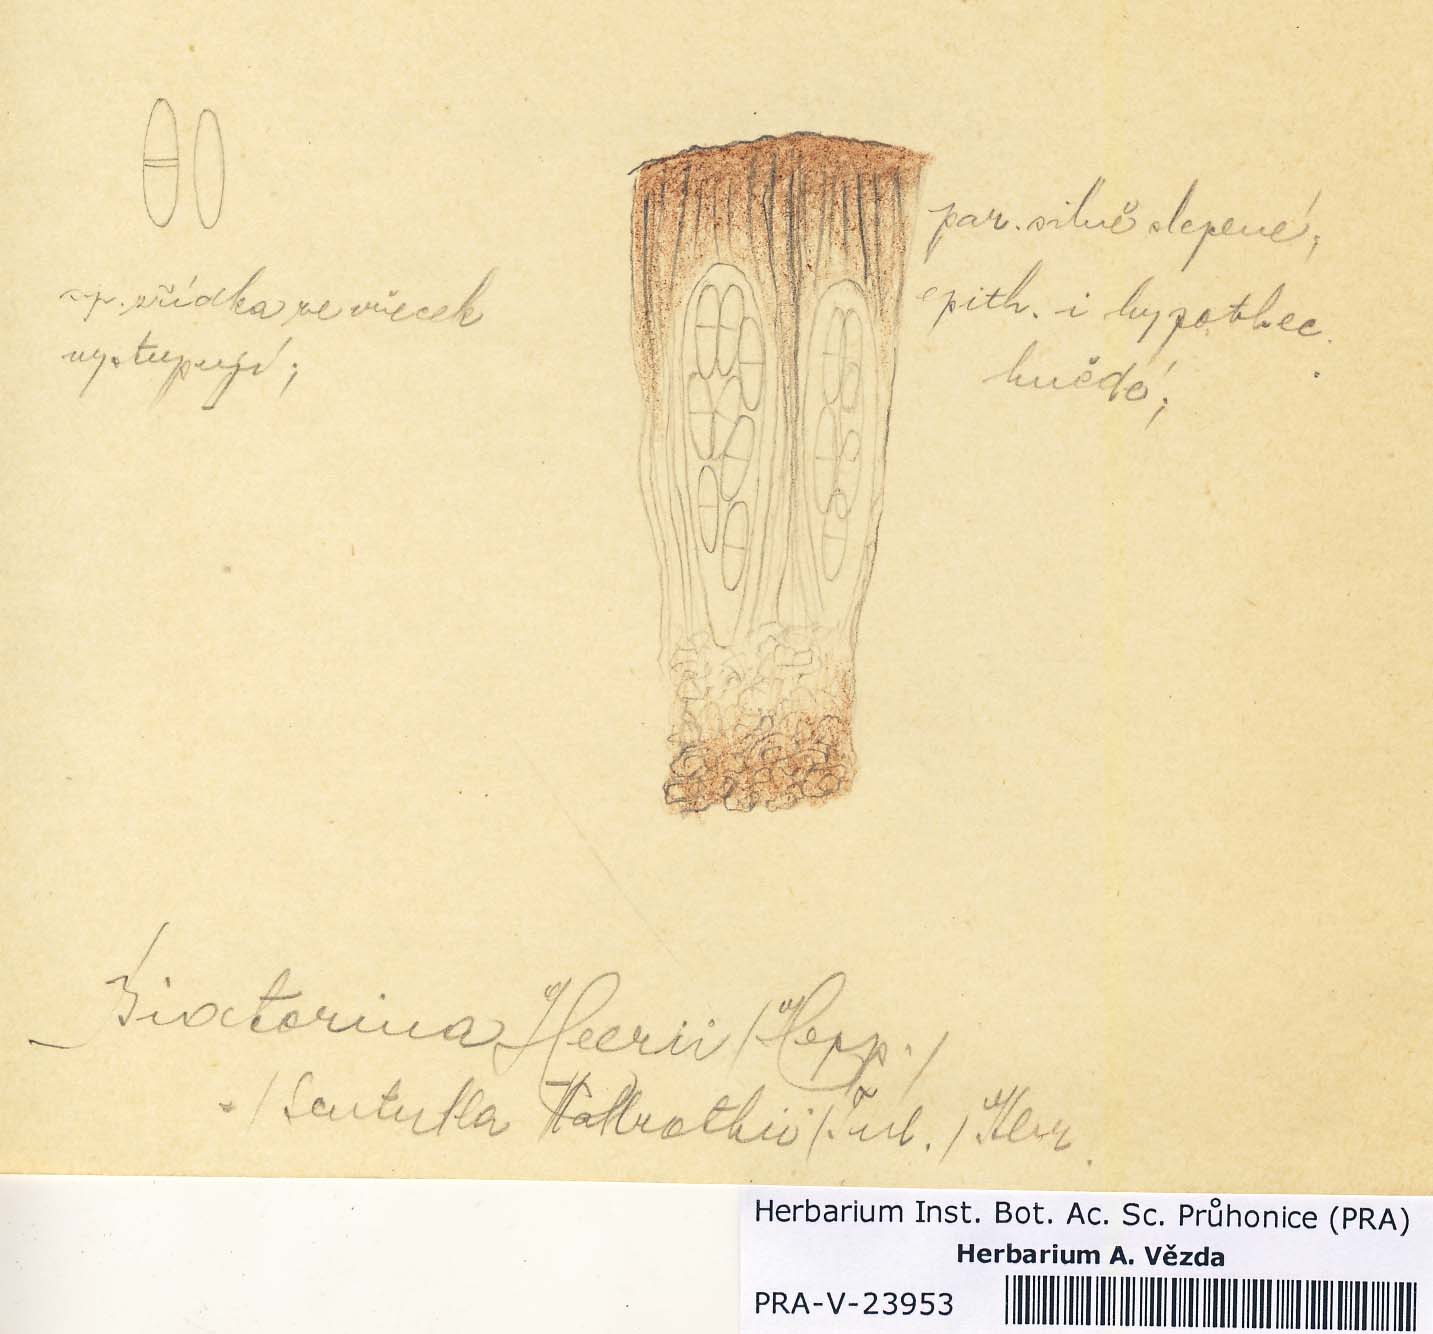 sp. zřídka ve vřecek
vystupují;
par. silně slepené;
epith. i hypothec.
hnědé;
Biatorina Heerii /Hepp./
/Scutula Wallrothii /Tul./ Kbr.
Herbarium Inst. Bot. Ac. Sc. Průhonice (PRA)
Herbarium A. Vězda
PRA-V-23953